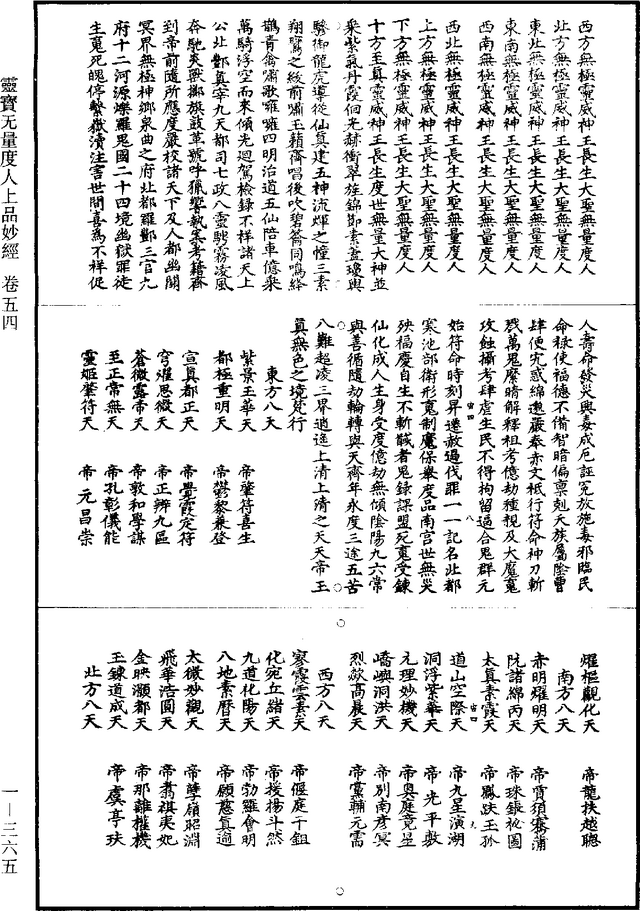 靈寶无量度人上品妙經 卷五四
西方無極靈威神王長生大聖無量度人
北方無極靈威神王長生大聖無量度人
東北無極靈威神王長生大聖無量度人
東南無極靈威神王長生大聖無量度人
西南無極靈威神王長生大聖無量度人
西北無極靈威神王長生大聖無量度人
上方無極靈威神王長生大聖無量度人
下方無極靈威神王長生大聖無量度人
十方王真靈威神王長生度世無量大神並
乘紫氣丹霞徊光赫衝翠旌錦節素蓋瓊輿
驂御龍虎導從仙真建五神流輝之幢三素
翔鸞之紋前嘯玉籟齊唱後吹碧簫同鳴絳
鵲青禽嘯歌嚾嚾四明治道五仙陪車億乘
萬騎浮空而來傾光迴駕檢錄不祥諸天上
公北酆真宰九天都司七政八靈騁霧凌風
奔馳炎獸擲旗鼓革號呼獵響執案考籍齊
到帝前隨所應度嚴校諸天下及人都幽關
冥界無極神鄉泉曲之府北都羅酆三官九
府十二河源爍羅鬼國二十四境幽獄罪徒
生冤死魄停繫嶽瀆注害世間喜為不祥促
人壽命發災興毒成厄誣冤放施毒邪臨民
命祿使福德不備智暗偏禀剋夭族屬陰曹
肆便宄惑綿邈嚴奉赤文祗行符命神刀斬
戮萬鬼縻睛解釋祖考憶劫種親及大魔冤
攻蝕攝考肆虐生民不得拘留逼合鬼群元
始符命時刻昇遷赦過伐罪一一記名北都
寒池部衛形魂制魔保舉度品南宮世無災
殃福慶自生不斬馘者鬼錄謀盟死魂受鍊
仙化成人生身受度億劫無傾陰陽九六常
與善循隨劫輪轉與天齊年永度三途五苦
八難超凌三界逍遙上清上清之天天帝玉
真無色之境梵行
東方八天
紫景王華天 帝肇符喜生
都極重明天 帝鬱黎兼登
宣真都正天 帝覺霞定符
穹耀思微天 帝正辨九區
蒼微露帝天 帝敦和學謀
至正常無天 帝孔彰儀能
靈姬肇符天 帝元昌崇
耀樞觀化天 帝龍扶越聰
南方八天
赤明耀明天 帝質須騫蒲
阮諸綿丙天 帝珠銀衫圖
太真素霞天 帝鳳趺王孙
道山空際天 帝九星演湖
洞浮紫華天 帝光平數
元理妙機天 帝奧庭竟星
嶠嶼洞洪天 帝別南彥冥
烈歊高晨天 帝黨輔元需
西方八天
寥霞雲表天 帝偃庭千鉏
化宛丘緒天 帝授揚斗然
九道化陽天 帝勃羅會明
八地素曆天 帝願慈真適
太微妙觀天 帝孽嶺昭淵
飛華浩圓天 帝翥祺夷妃
金映灝都天 帝那離權機
王鍊道成天 帝虞亭玞
北方八天
一—三六五